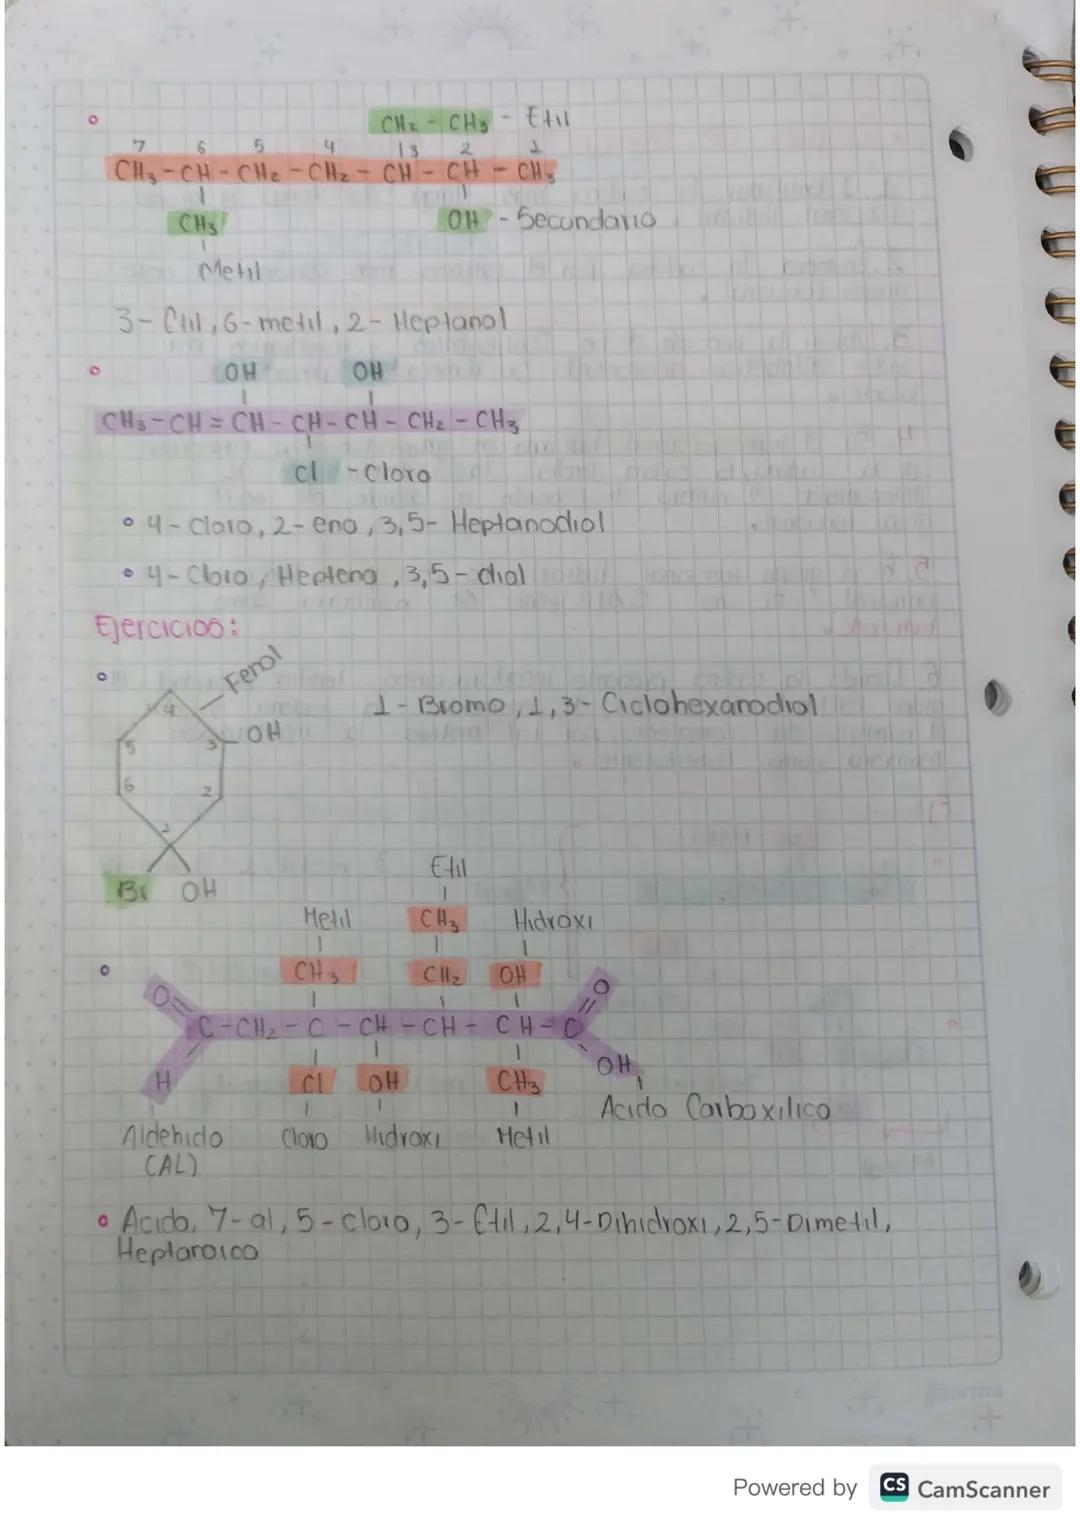 CH2 - CH3 - Etil
7 6 5 4 3 2 1
CH3 - CH - CH2 - CH2 - CH - CH - CH3
CH3 OH - Secundario
Metil
3 - Etil, 6 - metil, 2 - Heptanol
OH OH
CH3 - CH = CH - CH - CH - CH2 - CH3
Cl - Cloro
4 - Cloro, 2 - eno, 3,5 - Heptanodiol
4 - Cloro, Hepteno, 3,5 - diol
Ejercicios:
Fenol
4
1 - Bromo, 1,3 - Ciclohexanodiol
5 3 OH
6 2
1
Br OH
Etil
Metil CH3 Hidroxi
CH3 CH2 OH
O O
C - CH2 - C - CH - CH - CH - C
H Cl OH CH3 OH
Acido Carboxilico
Aldehido Cloro Hidroxi Metil
(AL)
Acido, 7 - al, 5 - cloro, 3 - Etil, 2,4 - Dihidroxi, 2,5 - Dimetil,
Heptanoico
Norma
Powered by CS CamScanner